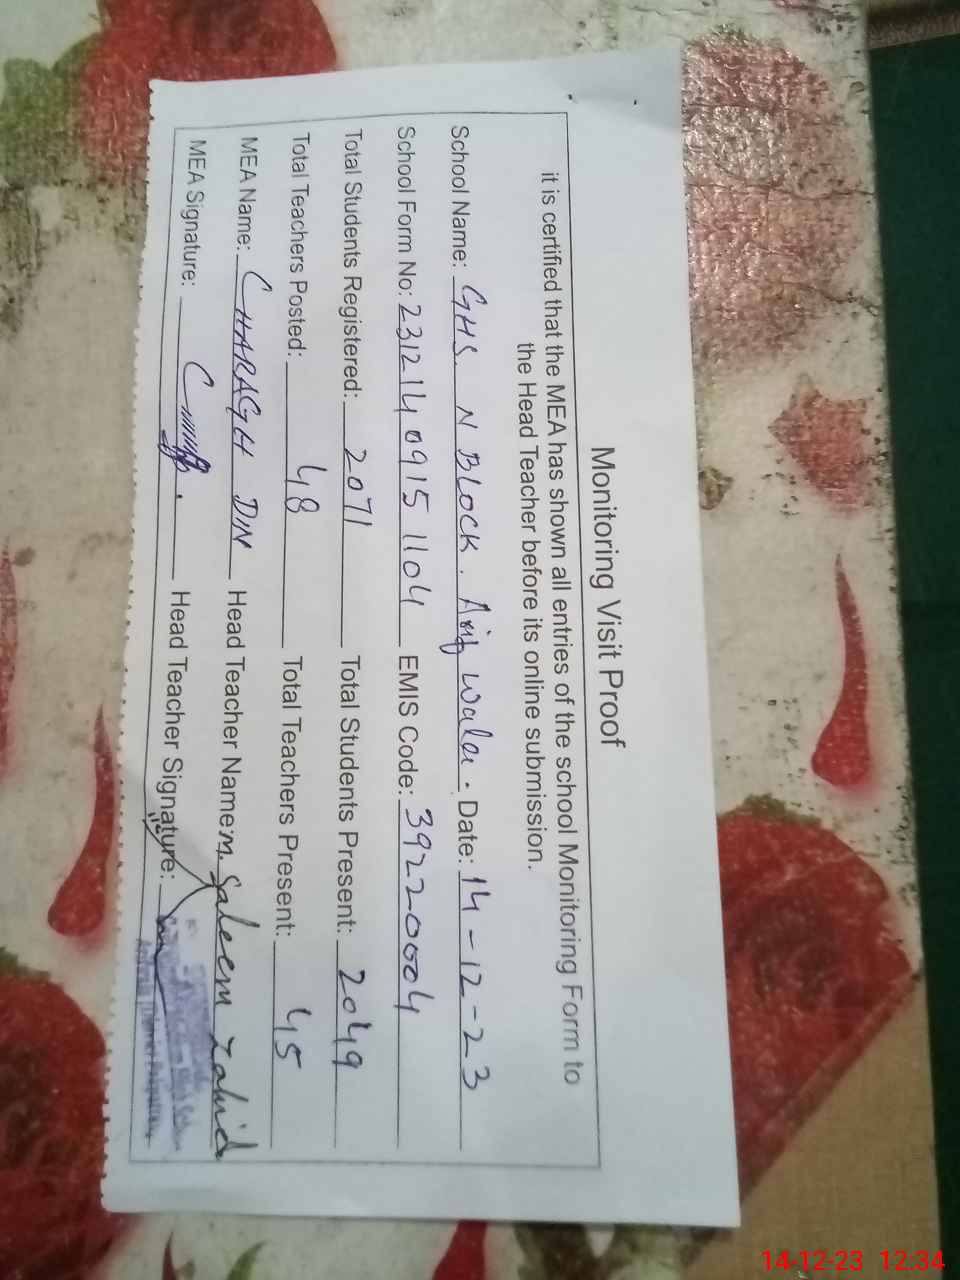 Monitoring Visit Proof
it is certified that the MEA has shown all entries of the school Monitoring Form to
the Head Teacher before its online submission.
School Name: GHS. N BLOCK. Arif Wala. Date: 14-12-23
School Form No: 2312140915 1104 EMIS Code: 39220004
Total Students Registered: 2071 Total Students Present: 2049
Total Teachers Posted: 48 Total Teachers Present: 45
MEA Name: CHARAGH DIN Head Teacher Name: M. Saleem Zahid
MEA Signature: Head Teacher Signature:
14-12-23 12:34